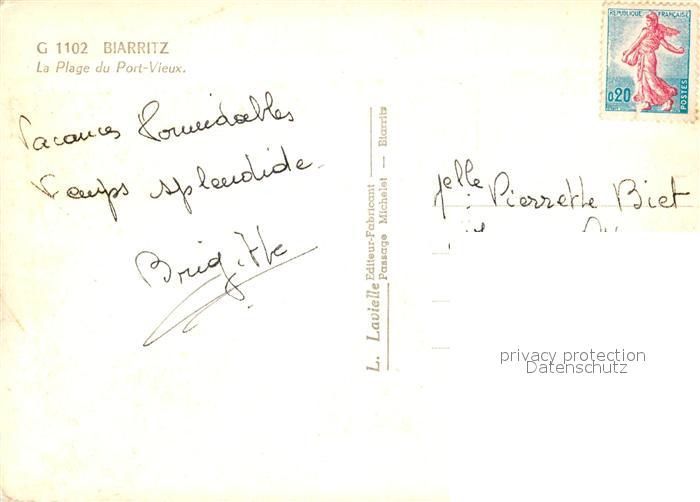 G 1102 BIARRITZ
La Plage du Port-Vieux.
REPUBLIQUE FRANÇAISE
0,20
POSTES
Vacances formidables
Temps splendide.
Brigitte
L. Lavielle Editeur-Fabricant — Passage Michelet — Biarritz
Melle Pierrette Biet
privacy protection
Datenschutz